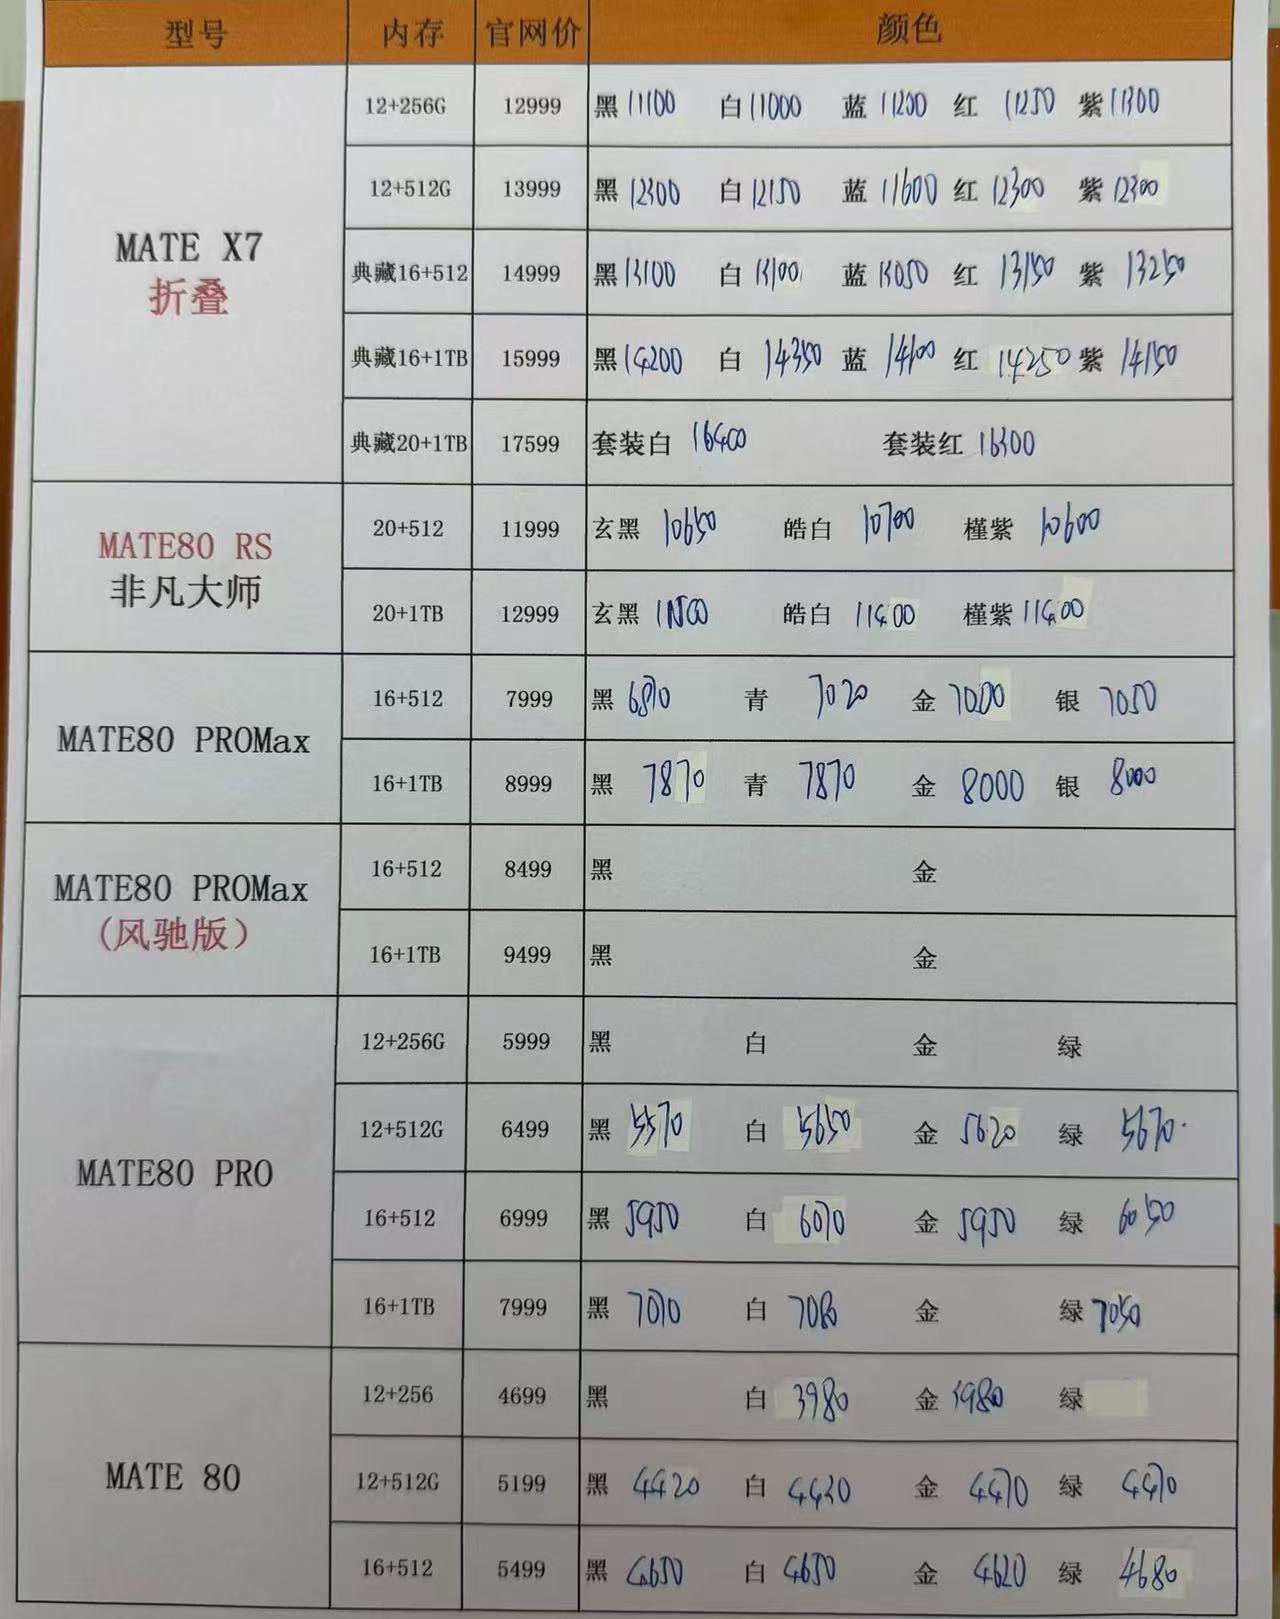 型号 内存 官网价 颜色
12+256G 12999 黑 11100 白 11000 蓝 11200 红 11250 紫 11300
12+512G 13999 黑 12300 白 12150 蓝 11600 红 12300 紫 12300
MATE X7
折叠
典藏16+512 14999 黑 13100 白 13100 蓝 13050 红 13150 紫 13250
典藏16+1TB 15999 黑 14200 白 14350 蓝 14100 红 14250 紫 14150
典藏20+1TB 17599 套装白 16400 套装红 16300
MATE80 RS
非凡大师
20+512 11999 玄黑 10650 皓白 10700 槿紫 10600
20+1TB 12999 玄黑 11500 皓白 11400 槿紫 11400
MATE80 PROMax
16+512 7999 黑 6870 青 7020 金 7000 银 7050
16+1TB 8999 黑 7870 青 7870 金 8000 银 8000
MATE80 PROMax
(风驰版)
16+512 8499 黑 金
16+1TB 9499 黑 金
MATE80 PRO
12+256G 5999 黑 白 金 绿
12+512G 6499 黑 5570 白 5650 金 5620 绿 5670
16+512 6999 黑 5950 白 6070 金 5950 绿 6050
16+1TB 7999 黑 7070 白 7080 金 绿 7050
MATE 80
12+256 4699 黑 白 3980 金 3980 绿
12+512G 5199 黑 4420 白 4430 金 4470 绿 4470
16+512 5499 黑 4650 白 4650 金 4620 绿 4680